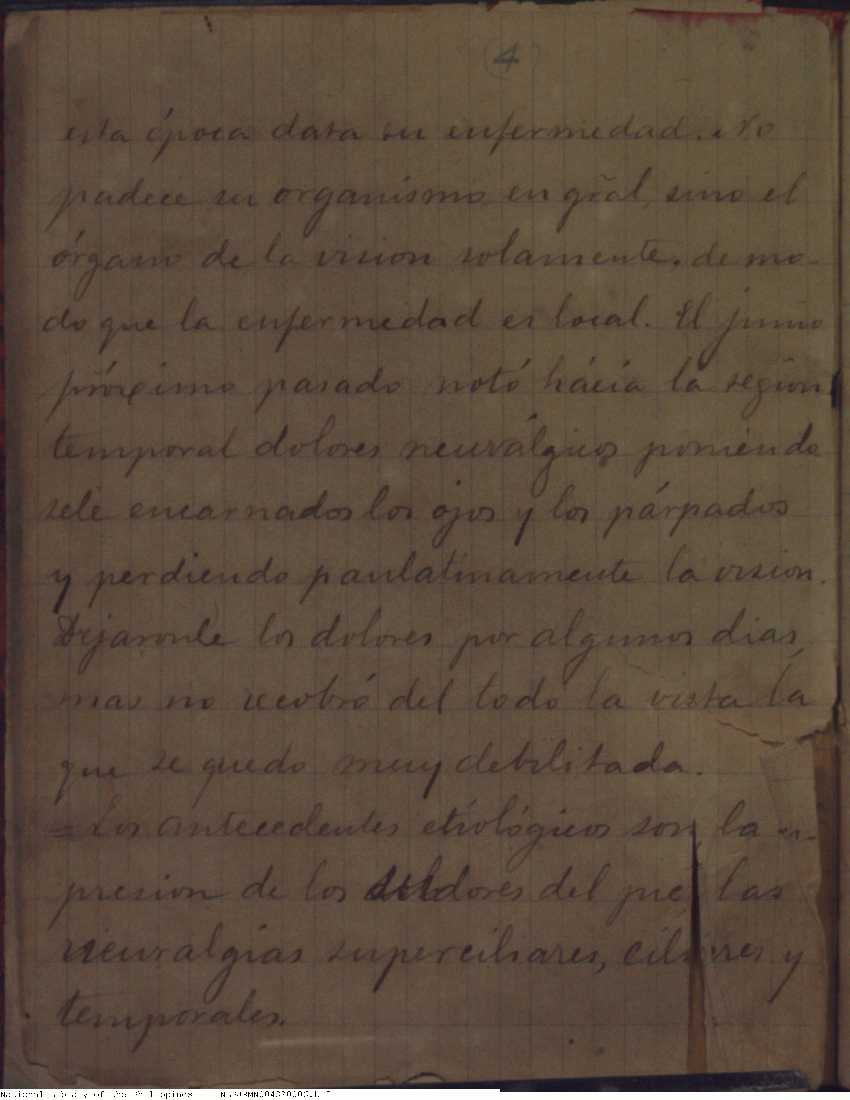 4
esta época data su enfermedad. No
padece su organismo en gr̃al, sino el
órgano de la vision solamente, de mo-
do que la enfermedad es local. El junio
próximo pasado notó hácia la region
temporal dolores neurálgicos poniendo
sele encarnados los ojos y los párpados
y perdiendo paulatinamente la vision.
Dejaronle los dolores por algunos dias,
mas no recobró del todo la vista la
que se quedo muy debilitada.
= Los antecedentes etiológicos son la
presion de los sudores del pie las
neuralgias superciliares, ciliares y
temporales.
National Library of the Philippines